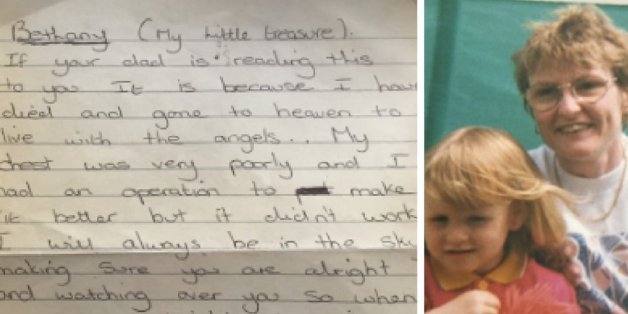 Bethany (My little treasure).
If your dad is reading this
to you It is because I hav
died and gone to heaven to
live with the angels.. My
chest was very poorly and I
had an operation to make
it better but it didn't work
I will always be in the sk
making sure you are alright
and watching over you so when